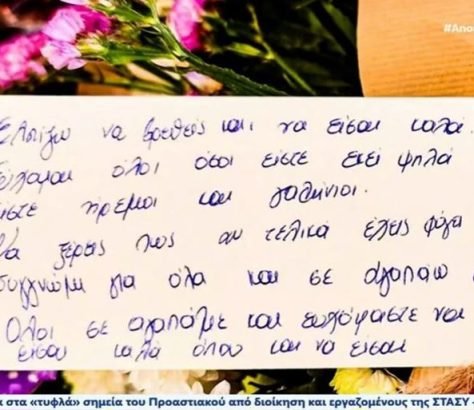 #Ano
Ελπίζω να βρεθείς και να είσαι καλά.
όλοι όσοι είστε εκεί ψηλά
ήρεμοι και γαλήνιοι.
ξέρεις πως αν τελικά έχεις φύγ
συγγνώμη για όλα και σε αγαπάω
Όλοι σε αγαπάμε και ευχόμαστε να
είσαι καλά όπου και να είσαι
α στα «τυφλά» σημεία του Προαστιακού από διοίκηση και εργαζομένους της ΣΤΑΣΥ